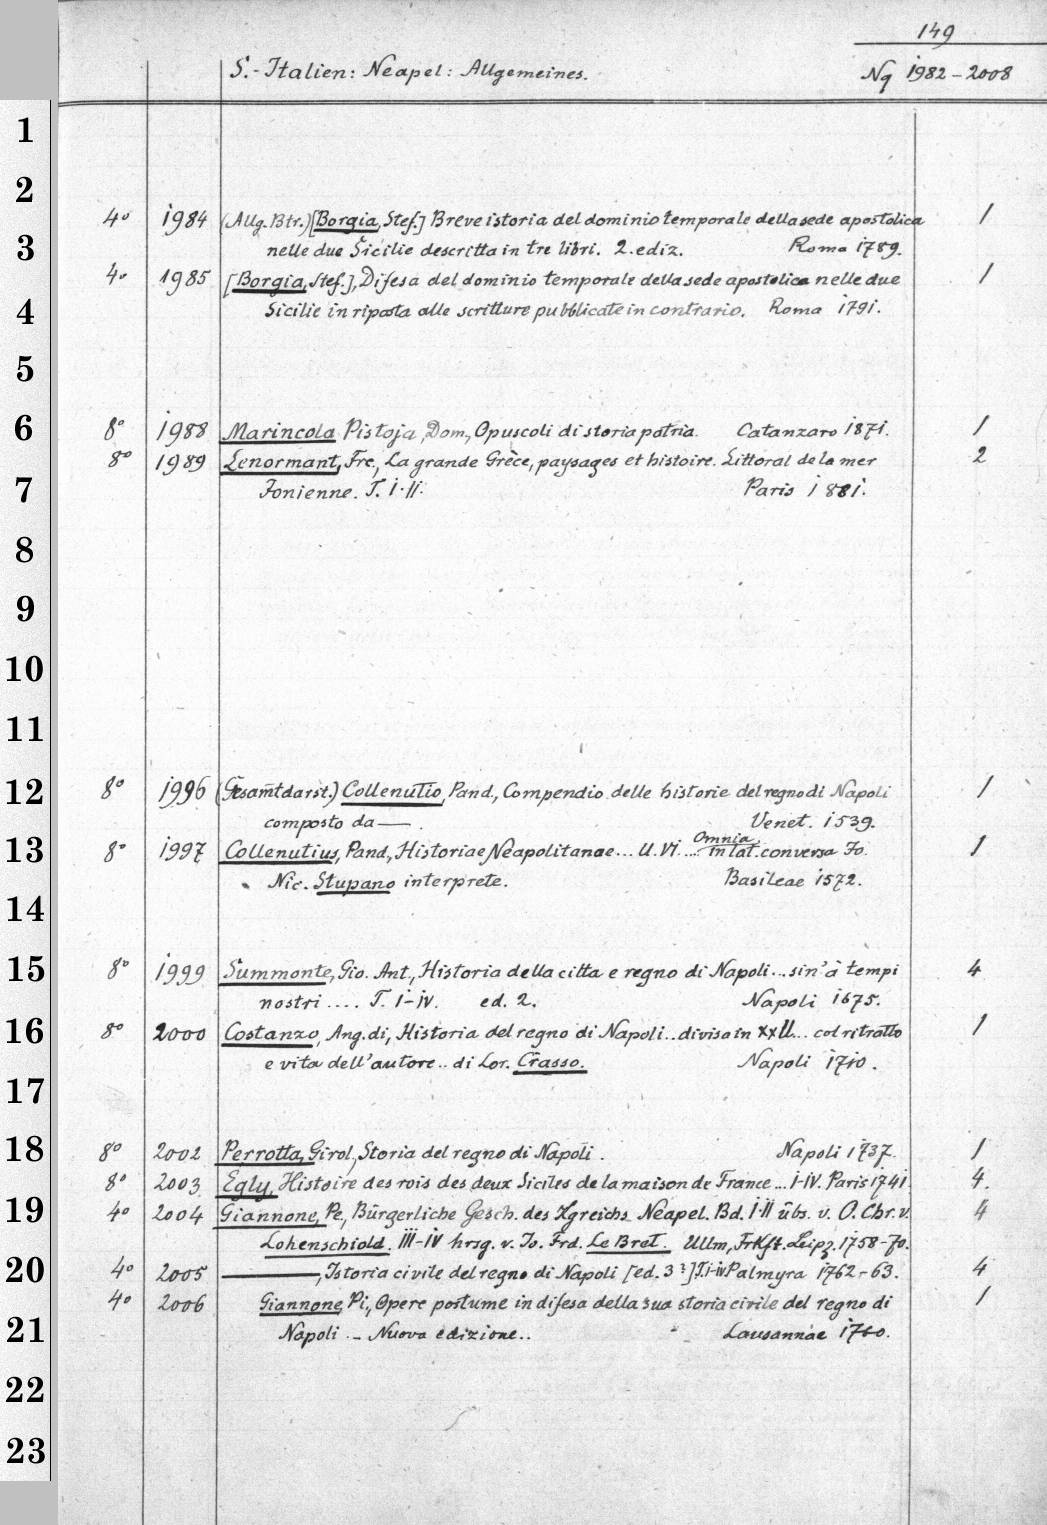 149
S.-Italien: Neapel: Allgemeines. Nq 1982-2008
1
2
4° 1984 (Allg. Btr.) [Borgia, Stef.] Breve istoria del dominio temporale della sede apostolica 1
3 nelle due Sicilie descritta in tre libri. 2. ediz. Roma 1789.
4° 1985 [Borgia, Stef.], Difesa del dominio temporale della sede apostolica nelle due 1
4 Sicilie in riposta alle scritture pubblicate in contrario. Roma 1791.
5
6 8° 1988 Marincola Pistoja, Dom., Opuscoli di storia patria. Catanzaro 1871. 1
8° 1989 Lenormant, Frc., La grande Grèce, paysages et histoire. Littoral de la mer 2
7 Ionienne. T. I-II. Paris 1881.
8
9
10
11
12 8° 1996 (Gesamtdarst.) Collenutio, Pand., Compendio delle historie del regno di Napoli 1
composto da —. Venet. 1539.
13 8° 1997 Collenutius, Pand., Historiae Neapolitanae... ll. VI.... Omnia in lat. conversa Jo. 1
Nic. Stupano interprete. Basileae 1572.
14
15 8° 1999 Summonte, Gio. Ant., Historia della citta e regno di Napoli... sin' à tempi 4
nostri .... T. I-IV. ed. 2. Napoli 1675.
16 8° 2000 Costanzo, Ang. di, Historia del regno di Napoli.. divisa in XX ll... col ritratto 1
e vita dell'autore.. di Lor. Crasso. Napoli 1710.
17
18 8° 2002 Perrotta, Girol., Storia del regno di Napoli. Napoli 1737. 1
8° 2003 Egly, Histoire des rois des deux Siciles de la maison de France... I-IV. Paris 1741. 4.
19 4° 2004 Giannone, Pe., Bürgerliche Gesch. des Kgreichs Neapel. Bd. I-II übs. v. O. Chr. v. 4
Lohenschiold. III-IV hrsg. v. Jo. Frd. Le Bret. Ullm, Frkft. Leipz. 1758-70.
20 4° 2005 ——, Istoria civile del regno di Napoli [ed. 3?] T. I-IV Palmyra 1762-63. 4
4° 2006 Giannone, Pi., Opere postume in difesa della sua storia civile del regno di 1
21 Napoli .- Nuova edizione.. Lausannae 1760.
22
23